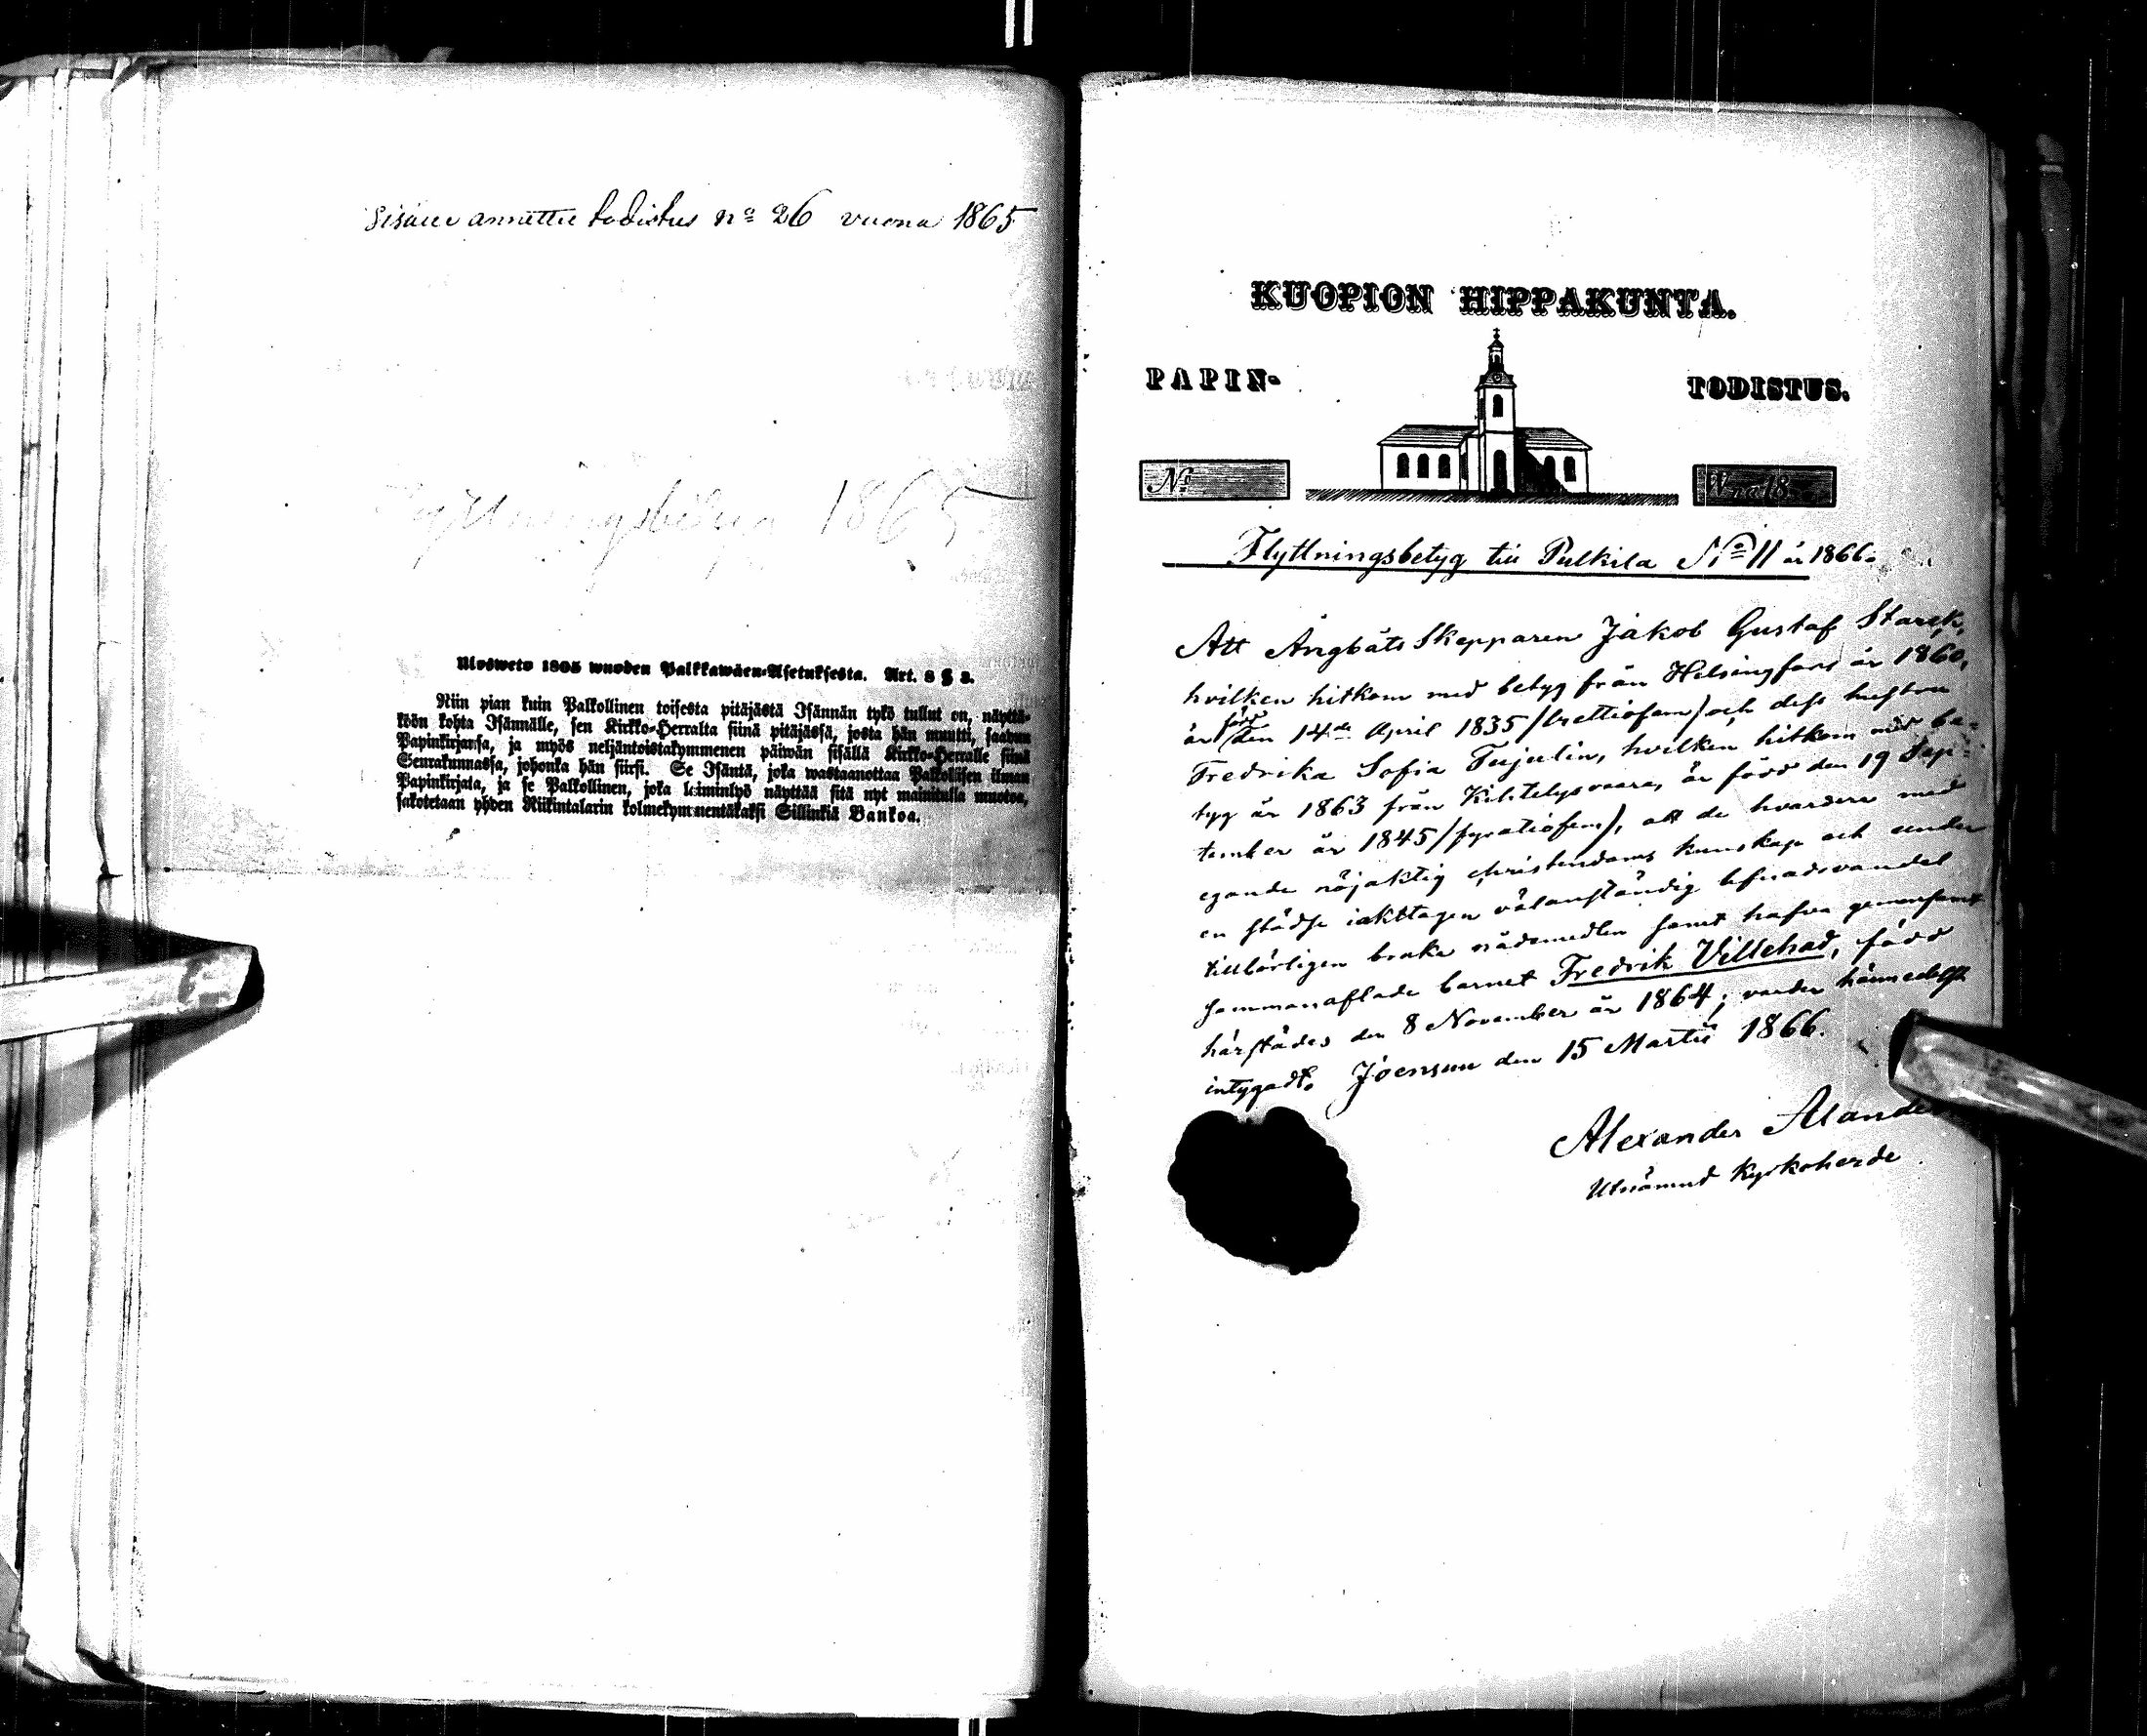 Sisälle annettu todistus no 26 vuona 1865
Flyttningsbetyg 1865
Ulosweto 1805 wuoden Palkkawäen-Asetuksesta. Art. 8 § 3.
Niin pian kuin Palkollinen toisesta pitäjästä Isännän tykö tullut on, näyttä-
köön kohta Isännälle, sen Kirkko-Herralta siinä pitäjässä, josta hän muutti, saadun
Papinkirjansa, ja myös neljäntoistakymmenen päiwän sisällä Kirkko-Herralle siinä
Seurakunnassa, johonka hän siirsi. Se Isäntä, joka wastaanottaa Palkollisen ilman
Papinkirjata, ja se Palkollinen, joka leiminlyö näyttää sitä nyt mainitulla muotoa,
sakotetaan yhden Riikintalarin kolmekymmentäkaksi Sillinkiä Bankoa.
KUOPION HIPPAKUNTA.
PAPIN-
TODISTUS.
No
W:na 18
Flyttningsbetyg till Pulkila No 11 år 1866.
Att Ångbåts Skepparen Jakob Gustaf Starck,
hvilken hitkom med betyg från Helsingfors år 1860,
är född den 14de April 1835 /trettiofem/ och dess hustru
Fredrika Sofia Tujulin, hvilken hitkom med be-
tyg år 1863 från Kihtelysvaara, är född den 19 Sep-
tember år 1845 /fyratiofem/, att de hvardera med
egande nöjaktig christendoms kunskap och under
en städse iakttagen välanständig lefnadsvandel
tillbörligen bruka nådemedlen samt hafva gemensamt
sammanaflade barnet Fredrik Villehad, född
härstädes den 8 November år 1864; varder härmedelst
intygadt. Joensuu den 15 Martii 1866.
Alexander Alander
Utnämnd Kyrkoherde